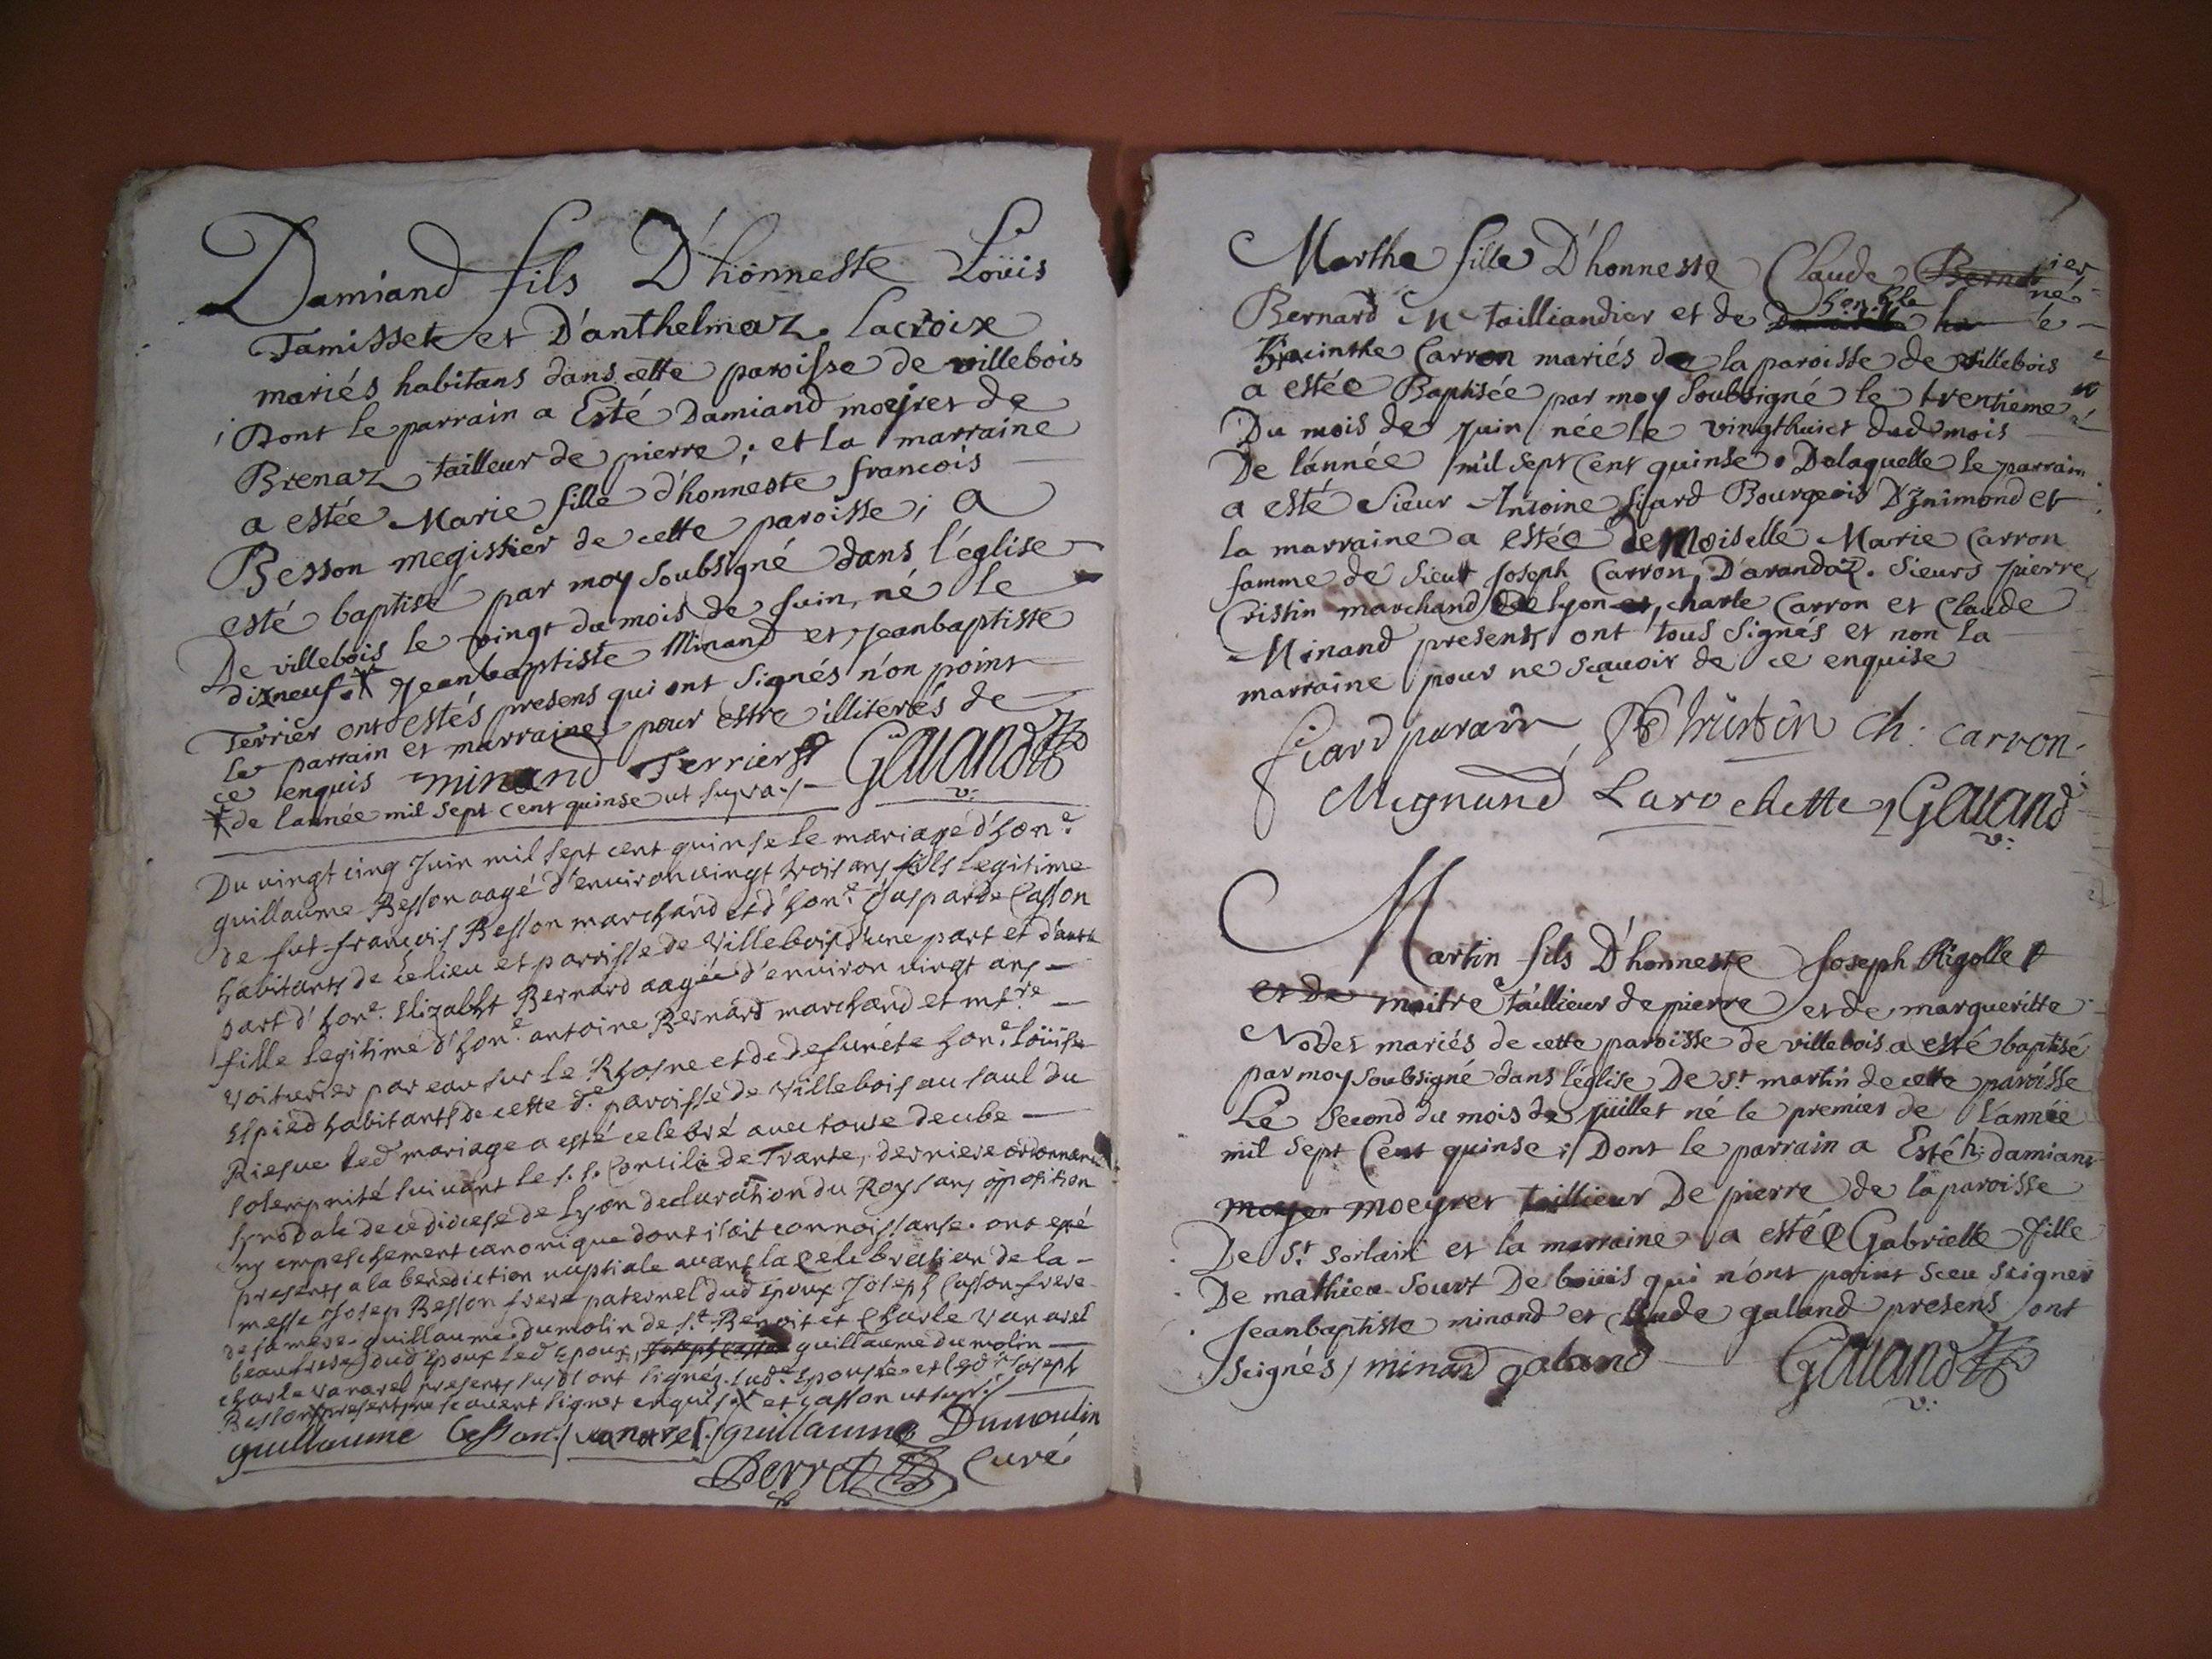 Damiand fils D'honneste Loüis
Tamisset et D'anthelmaz Lacroix
mariés habitans dans cette paroisse de villebois
Dont le parrain a Esté Damiand moeyret de
Brenaz tailleur de pierre; et la marraine
a estée Marie fille d'honneste francois
Besson megissier de cette paroisse; a
esté baptisé par moy soubsigné dans l'eglise
De villebois le vingt du mois de Juin, né le
dixneuf. Jeanbaptiste Minand et Jeanbaptiste
Terrier ont estés presens qui ont signés non point
le parrain et marraine pour estre illiterés de
ce enquis minand Terrier Galand
v:
de lannée mil sept cent quinse ut supra
Du vingt cinq Juin mil sept cent quinse le mariage d'hon.e
guillaume Besson aagé d'environ vingt trois ans fils legitime
de fut françois Besson marchand et d'hon.e Gasparde Casson
habitants de ce lieu et parroisse de Villebois d'une part et d'autre
part d'hon.e Elizabht Bernard aagée d'environ vingt ans
fille legitime d'hon.e antoine Bernard marchand et m.tre
voiturier par eau sur le Rhosne et de defuncte hon.e Loüise
Espied habitants de cette d.e paroisse de Villebois au saul du
Riesue led mariage a esté celebré avec toute deube
solempnité suivant le s. s. Concile de Trante, derniere ordonnance
synodale de ce diocese de Lyon declaration du Roy sans opposition
ny empeschement canonique dont i soit connoissanse. ont esté
presents a la benediction nuptiale avant la celebration de la
messe Josep Besson frere paternel dud Epoux Joseph Casson frere
de sa mere guillaume dumolin de s.t Benoit et Charle Vanarel
beaufrere dud Epoux led Epoux, guillaume dumolin
charle vanarel presents susd ont signés lad.e Epouse et led Joseph
Besson presents ne scavent signer enquis et Casson ut supr.
guillaume besson vanarel guillaume Dumoulin
Perret Curé
Marthe fille D'honneste Claude Bernd
Bernard Me tailliandier et de hon.ble
Hyacinthe Carron mariés de la paroisse de villebois
a estée Baptisée par moy soubsigné le trentieme
Du mois de Juin née le vingthuict dud mois
De l'année mil sept cent quinse. Delaquelle le parrain
a esté Sieur Antoine ficard Bourgeois D'Jnimond et
la marraine a estée deMoiselle Marie Carron
famme de sieur Joseph Carron, D'arandaz. Sieurs pierre
Cristin marchand de lyon, charle Carron et Claude
Minand presents ont tous signés et non la
marraine pour ne sçavoir de ce enquise
ficard parain Christin Ch: Carron.
Mignand Larochette Galand
v:
Martin fils D'honneste Joseph Rigollet
et de maitre tailliur de pierre et de margueritte
Nodet mariés de cette paroisse de villebois a esté baptisé
par moy soubsigné dans léglise De s.t martin de cette paroisse
Le second du mois de juillet né le premier de l'année
mil sept Cent quinse; Dont le parrain a Esté h: damiant
moyer moeyret taillieur De pierre de la paroisse
De s.t sorlain et la marraine a estée Gabrielle fille
De mathieu sourt De boüis qui n'ont point sceu seigner
Jeanbaptiste minand et Claude galand presens ont
seignés minand galand Galand
v: